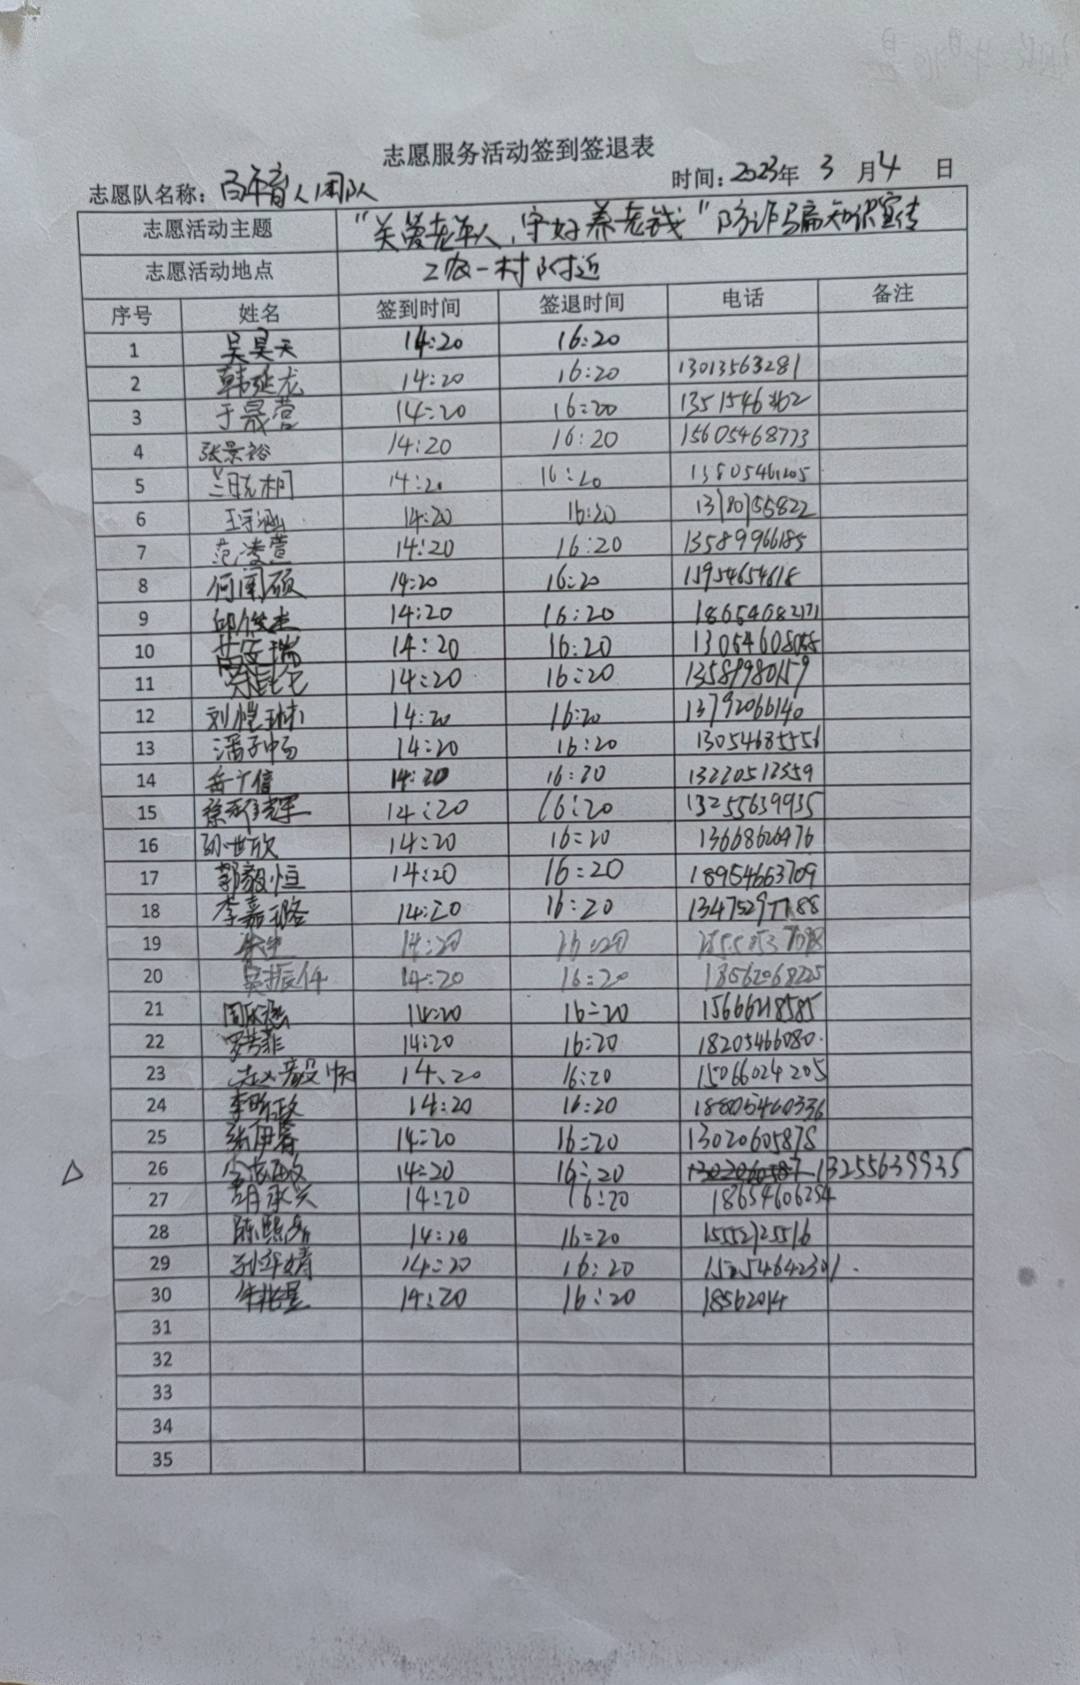 志愿服务活动签到签退表
志愿队名称：百年育人团队 时间：2023年 3 月 4 日
志愿活动主题 “关爱老年人，守好养老钱”防诈骗知识宣传
志愿活动地点 工农一村附近
序号 姓名 签到时间 签退时间 电话 备注
1 吴昊天 14:20 16:20
2 韩延龙 14:20 16:20 13013563281
3 于晟营 14:20 16:20
4 张景裕 14:20 16:20 15605468773
5 14:20 16:20
6 王宇涵 14:20 16:20
7 范凌萱 14:20 16:20 13589966185
8 何雨硕 14:20 16:20
9 邱俊杰 14:20 16:20
10 14:20 16:20
11 14:20 16:20 13589980159
12 刘恺琳 14:20 16:20 13792066140
13 潘子畅 14:20 16:20 13054685556
14 岳广信 14:20 16:20 13220512559
15 14:20 16:20 13255639935
16 孙世欣 14:20 16:20
17 郭毅恒 14:20 16:20 18954663709
18 李嘉璐 14:20 16:20 13475297188
19 14:20 16:20
20 吴振伟 14:20 16:20 18562068225
21 14:20 16:20 15666218585
22 罗芸菲 14:20 16:20 18205466080
23 赵毅帆 14:20 16:20 15066024205
24 李昕政 14:20 16:20 18805460336
25 张伊春 14:20 16:20 13020605878
26 14:20 16:20 13255639935
27 胡承昊 14:20 16:20 18654606254
28 14:20 16:20 15552125516
29 孙华婧 14:20 16:20
30 朱兆星 14:20 16:20 18562014
31
32
33
34
35